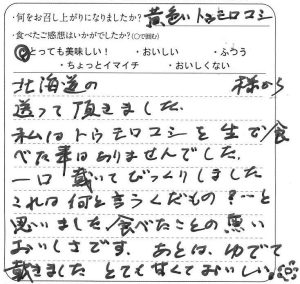 ・何をお召し上がりになりましたか？ 黄色いトウモロコシ
・食べたご感想はいかがでしたか？(○で囲む)
・とっても美味しい！ ・おいしい ・ふつう
・ちょっとイマイチ ・おいしくない
北海道の 様から
送って頂きました。
私はトウモロコシを生で食
べた事はありませんでした。
一口 戴いてびっくりしました
これは何と言うくだもの？…と
思いました 食べたことの無い
おいしさです。 あとは、ゆでて
戴きました とても甘くておいしい。